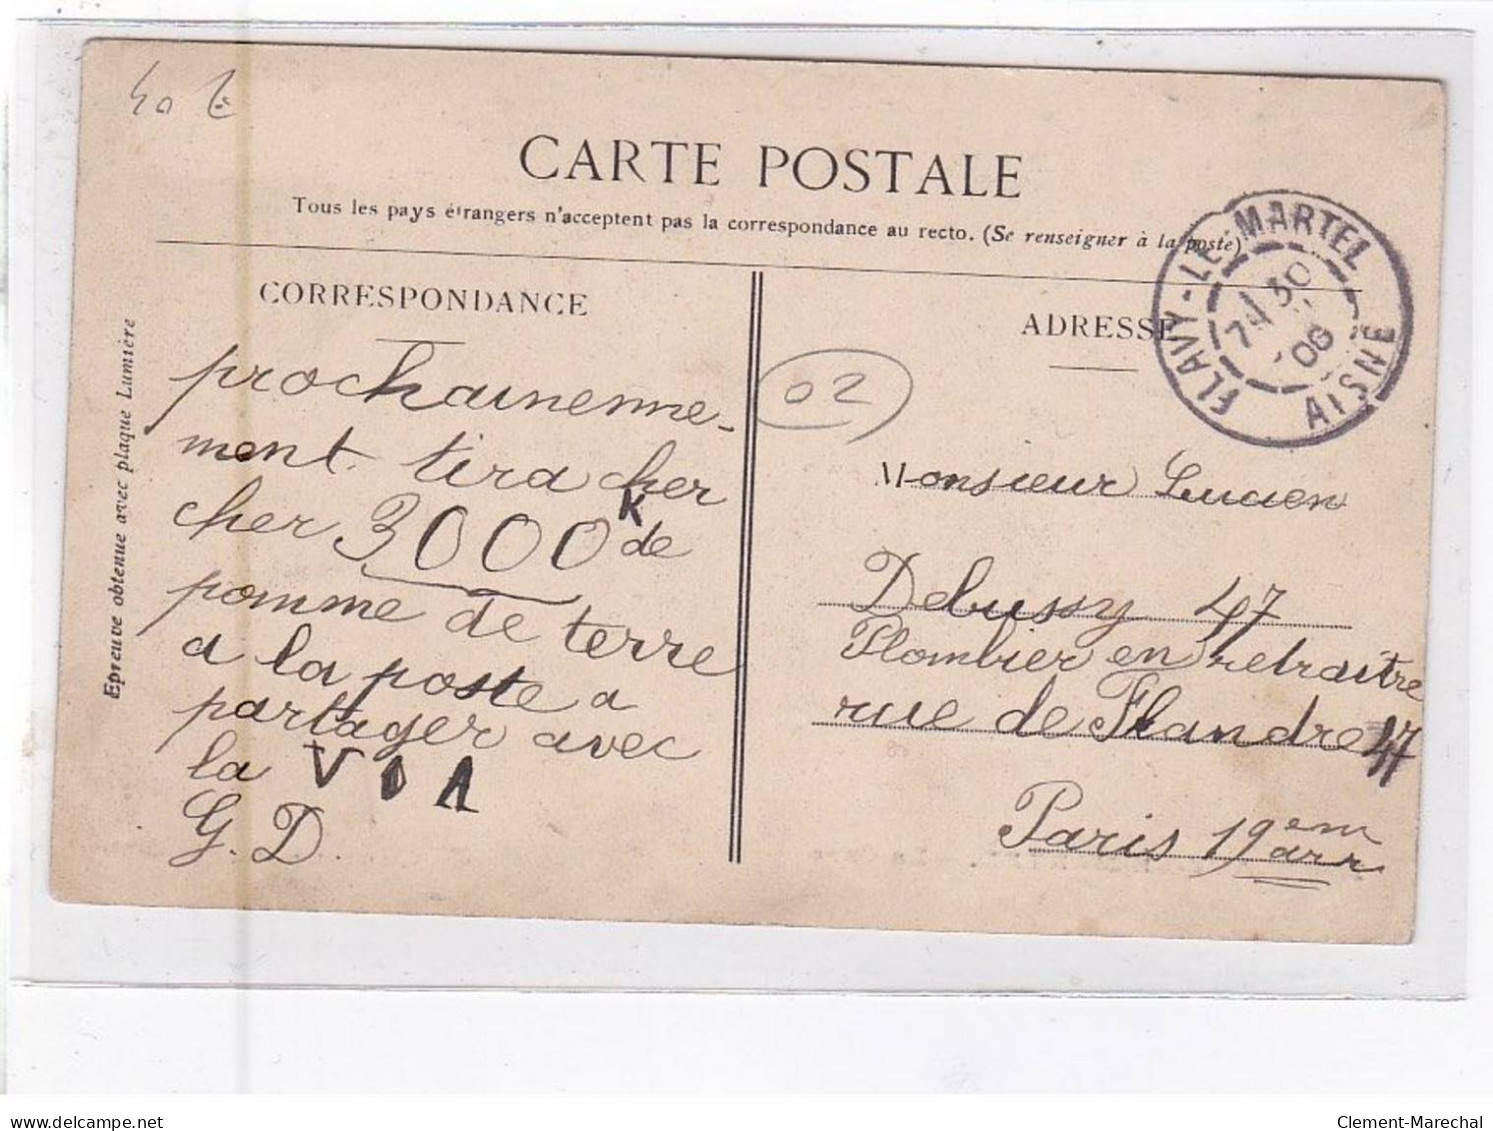 40 €
CARTE POSTALE
Tous les pays étrangers n'acceptent pas la correspondance au recto. (Se renseigner à la poste)
CORRESPONDANCE
prochainenme-
ment tira cher
cher 3000 K de
pomme de terre
a la poste a
partager avec
la
G. D.
Epreuve obtenue avec plaque Lumière
ADRESSE
FLAVY-LE-MARTEL
AISNE
30
06
02
Monsieur Lucien
Debussy 47
Plombier en retraitre
rue de Flandre 47
Paris 19em arr
Clement-Marechal
delcampe.net